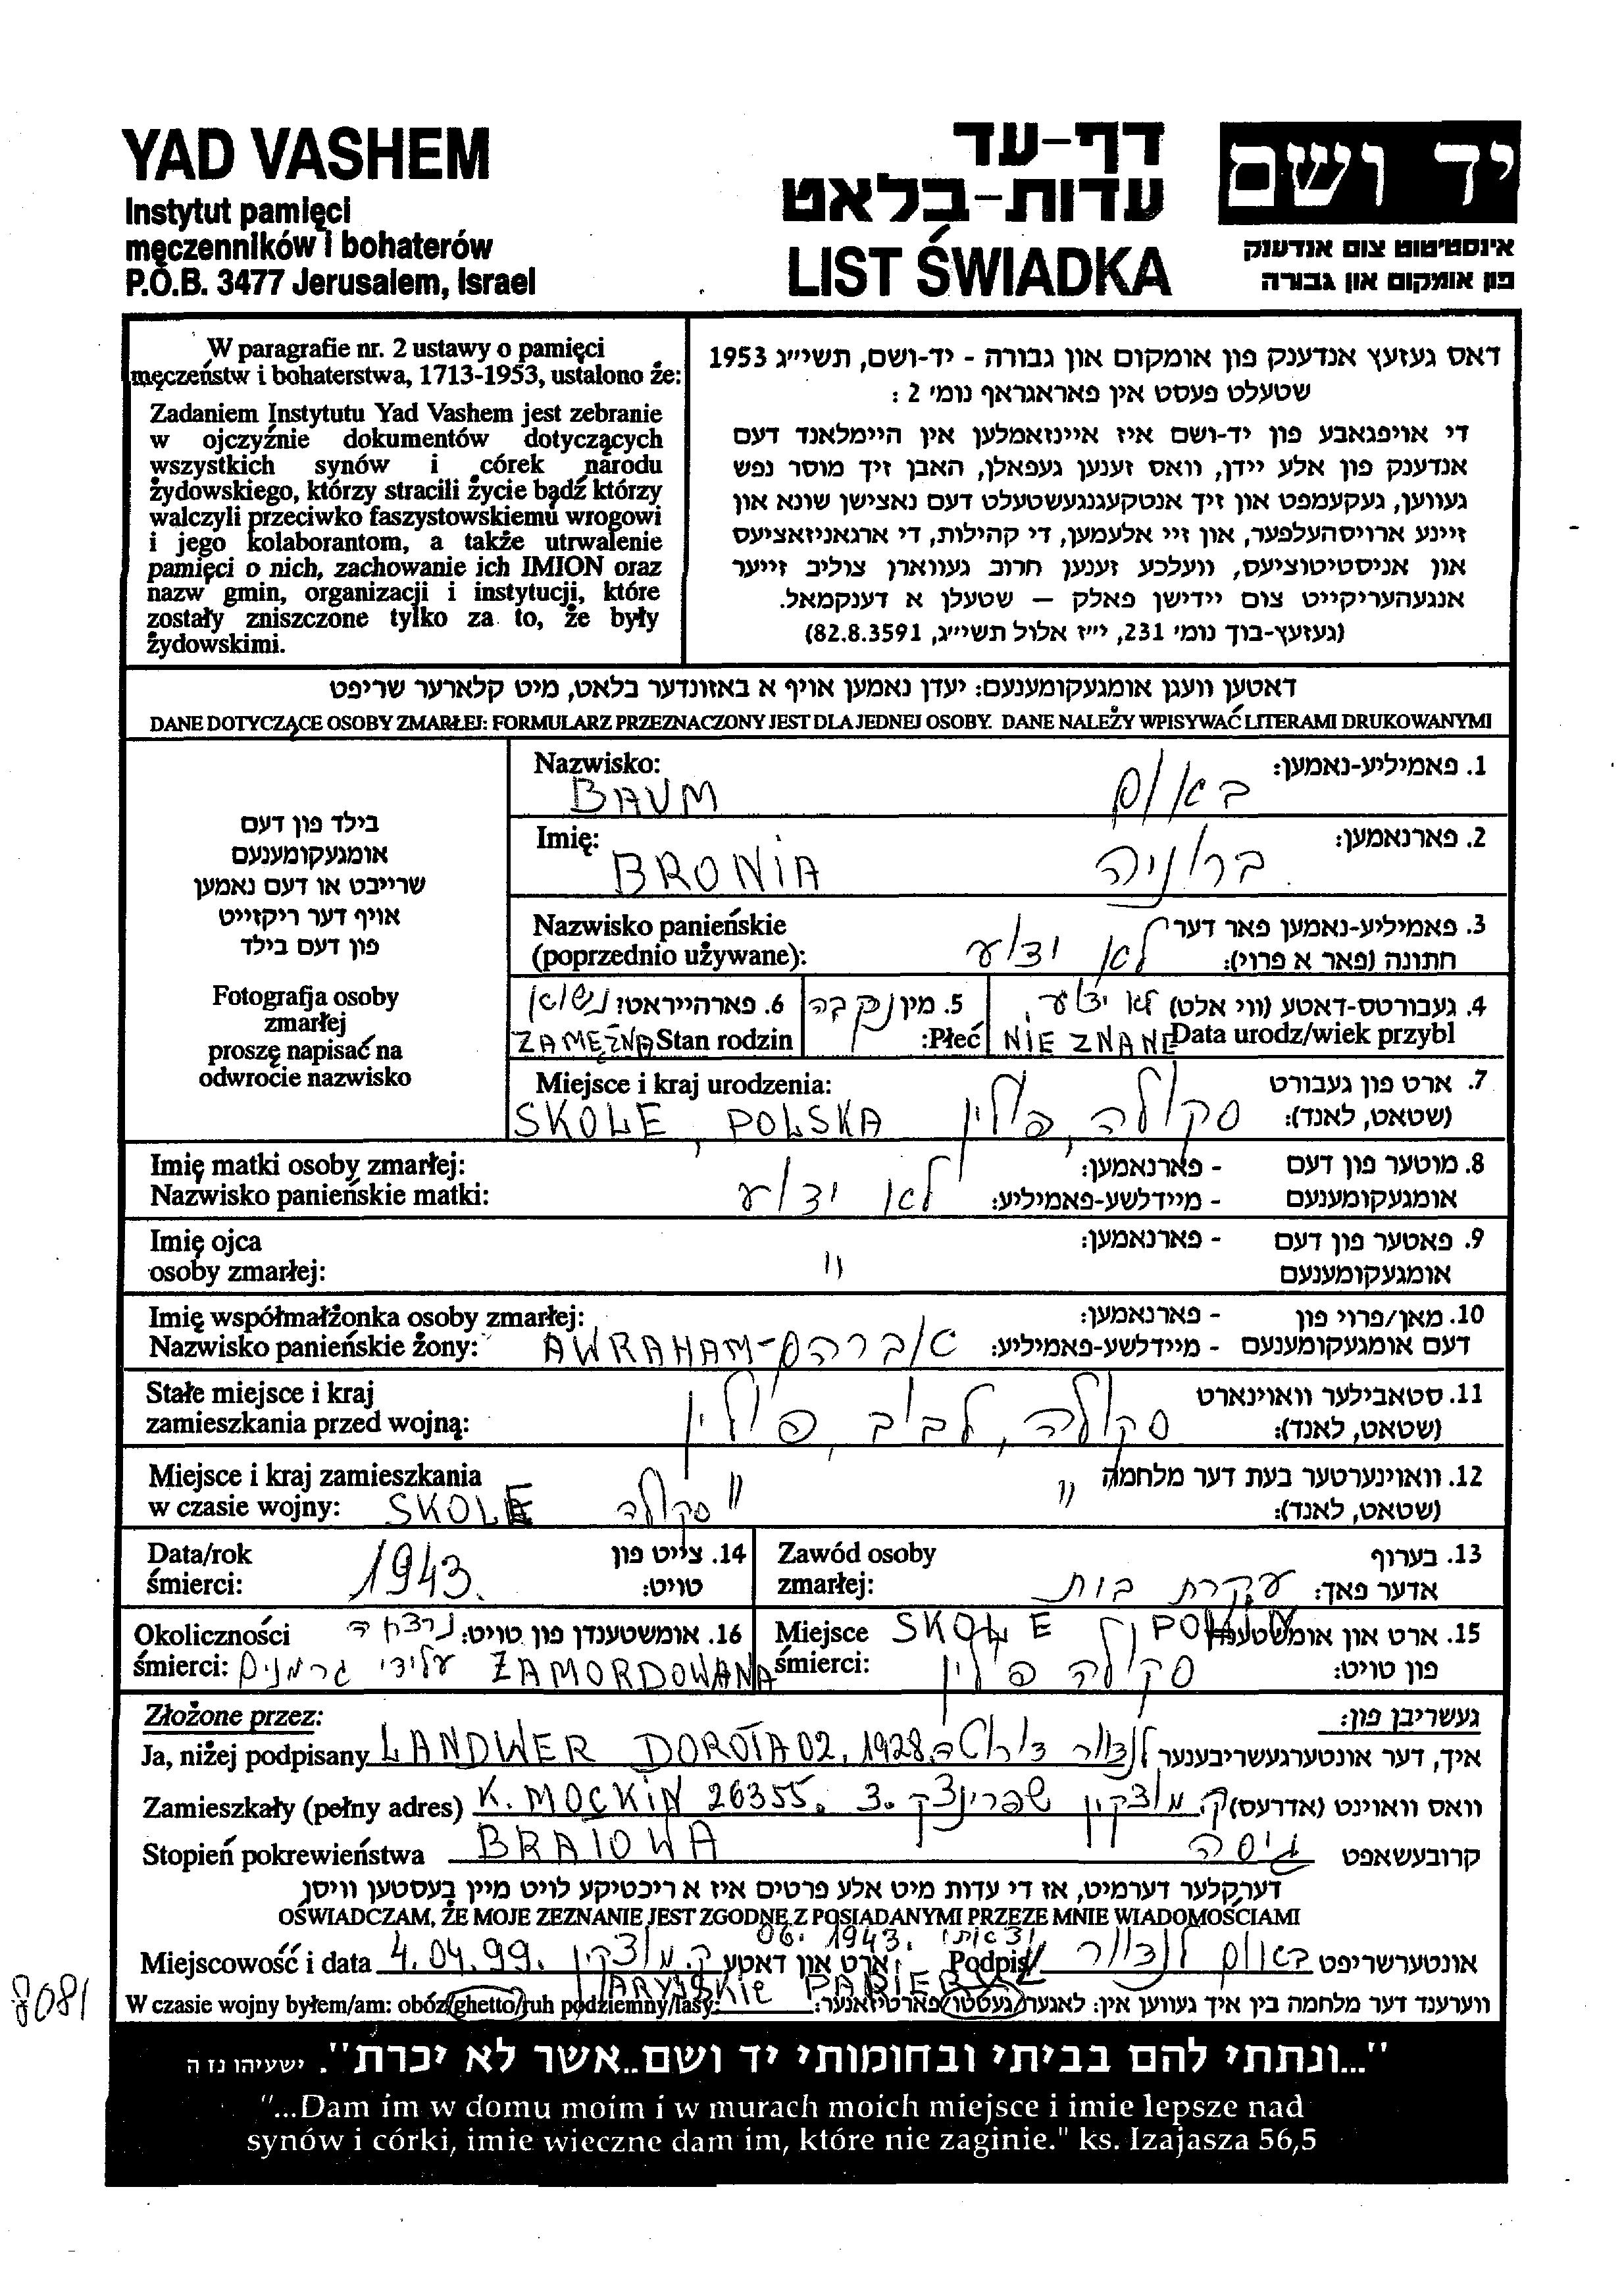 YAD VASHEM
Instytut pamięci
męczenników i bohaterów
P.O.B. 3477 Jerusalem, Israel
דף-עד
עדות-בלאט
LIST ŚWIADKA
יד ושם
אינסטיטוט צום אנדענק
פון אומקום און גבורה
W paragrafie nr. 2 ustawy o pamięci
męczeństw i bohaterstwa, 1713-1953, ustalono że:
Zadaniem Instytutu Yad Vashem jest zebranie
w ojczyźnie dokumentów dotyczących
wszystkich synów i córek narodu
żydowskiego, którzy stracili życie bądź którzy
walczyli przeciwko faszystowskiemu wrogowi
i jego kolaborantom, a także utrwalenie
pamięci o nich, zachowanie ich IMION oraz
nazw gmin, organizacji i instytucji, które
zostały zniszczone tylko za to, że były
żydowskimi.
דאס געזעץ אנדענק פון אומקום און גבורה - יד-ושם, תשי״ג 1953
שטעלט פעסט אין פאראגראף נומי 2 :
די אויפגאבע פון יד-ושם איז איינזאמלען אין היימלאנד דעם
אנדענק פון אלע יידן, וואס זענען געפאלן, האבן זיך מוסר נפש
געווען, געקעמפט און זיך אנטקעגנגעשטעלט דעם נאצישן שונא און
זיינע ארויסהעלפער, און זיי אלעמען, די קהילות, די ארגאניזאציעס
און אניסטיטוציעס, וועלכע זענען חרוב געווארן צוליב זייער
אנגעהעריקייט צום יידישן פאלק — שטעלן א דענקמאל.
(געזעץ-בוך נומי 231, י״ז אלול תשי״ג, 82.8.3591)
דאטען וועגן אומגעקומענעם: יעדן נאמען אויף א באזונדער בלאט, מיט קלארער שריפט
DANE DOTYCZĄCE OSOBY ZMARŁEJ: FORMULARZ PRZEZNACZONY JEST DLA JEDNEJ OSOBY. DANE NALEŻY WPISYWAĆ LITERAMI DRUKOWANYMI
בילד פון דעם
אומגעקומענעם
שרייבט או דעם נאמען
אויף דער ריקזייט
פון דעם בילד
Fotografja osoby
zmarłej
proszę napisać na
odwrocie nazwisko
Nazwisko: 1. פאמיליע-נאמען:
BAUM באום
Imię: 2. פארנאמען:
BRONIA ברוניה
Nazwisko panieńskie 3. פאמיליע-נאמען פאר דער
(poprzednio używane): לא ידוע חתונה (פאר א פרוי):
4. געבורטס-דאטע (ווי אלט) לא ידוע
NIE ZNANE Data urodz/wiek przybl
5. מין נקבה
Płeć:
6. פארהייראט: נשואן
ZAMĘŻNA Stan rodzin
Miejsce i kraj urodzenia: 7. ארט פון געבורט
SKOLE, POLSKA סקולה, פולין (שטאט, לאנד):
Imię matki osoby zmarłej: - פארנאמען: 8. מוטער פון דעם
Nazwisko panieńskie matki: לא ידוע - מיידלשע-פאמיליע: אומגעקומענעם
Imię ojca - פארנאמען: 9. פאטער פון דעם
osoby zmarłej: " אומגעקומענעם
Imię współmałżonka osoby zmarłej: - פארנאמען: 10. מאן/פרוי פון
Nazwisko panieńskie żony: AWRAHAM-אברהם - מיידלשע-פאמיליע: דעם אומגעקומענעם
Stałe miejsce i kraj 11. סטאבילער וואוינארט
zamieszkania przed wojną: סקולה, לבוב, פולין (שטאט, לאנד):
Miejsce i kraj zamieszkania 12. וואוינערטער בעת דער מלחמה
w czasie wojny: SKOLE סקולה " " (שטאט, לאנד):
Data/rok 14. צייט פון
śmierci: 1943. טויט:
Zawód osoby 13. בערוף
zmarłej: עקרת בית אדער פאך:
Okoliczności 16. אומשטענדן פון טויט: נרצחה
śmierci: על ידי גרמנים ZAMORDOWANA
Miejsce SKOLE 15. ארט און אומשטענדן
śmierci: סקולה פולין פון טויט:
Złożone przez: געשריבן פון:
Ja, niżej podpisany LANDWER DOROTA 02.1928. לנדוור דורוטה איך, דער אונטערגעשריבענער
Zamieszkały (pełny adres) K. MOCKIN 26355. ק. מוצקין שפרינצק 3. וואס וואוינט (אדרעס)
Stopień pokrewieństwa BRATOWA גיסה קרובעשאפט
דערקלער דערמיט, אז די עדות מיט אלע פרטים איז א ריכטיקע לויט מיין בעסטען וויסן
OŚWIADCZAM, ŻE MOJE ZEZNANIE JEST ZGODNE Z POSIADANYMI PRZEZE MNIE WIADOMOŚCIAMI
06. 1943.
Miejscowość i data 4.04.99. ק. מוצקין ארט און דאטע Podpis באום לנדוור אונטערשריפט
ARYJSKIE PAPIERY
W czasie wojny byłem/am: obóz/ghetto/ruh podziemny/lasy: ווערענד דער מלחמה בין איך געווען אין: לאגער/געטטו/פארטיזאנער:
8081
"...ונתתי להם בביתי ובחומותי יד ושם..אשר לא יכרת". ישעיהו נז ה
"...Dam im w domu moim i w murach moich miejsce i imie lepsze nad
synów i córki, imie wieczne dam im, które nie zaginie." ks. Izajasza 56,5